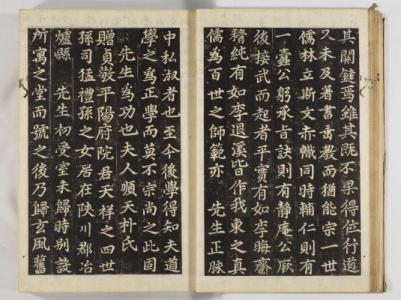 其關鍵焉雖其旣不果得位行道
又未及著書垂敎而猶能宗一世
儒林立斯文赤幟同時輔仁則有
一蠹公躬承旨訣則有靜庵公厥
後接武而起者平實有如李晦齋
精純有如李退溪皆作我東之眞
儒爲百世之師範亦 先生正脉
中私淑者也至今後學得知夫道
學之爲正學而莫不宗尚之此固
先生爲功也夫人順天朴氏
贈貞敬平陽府院君天祥之四世
孫司猛禮孫之女居在陜川郡冶
爐縣 先生初受室未歸時別設
所寓之堂而號之後乃歸玄風舊